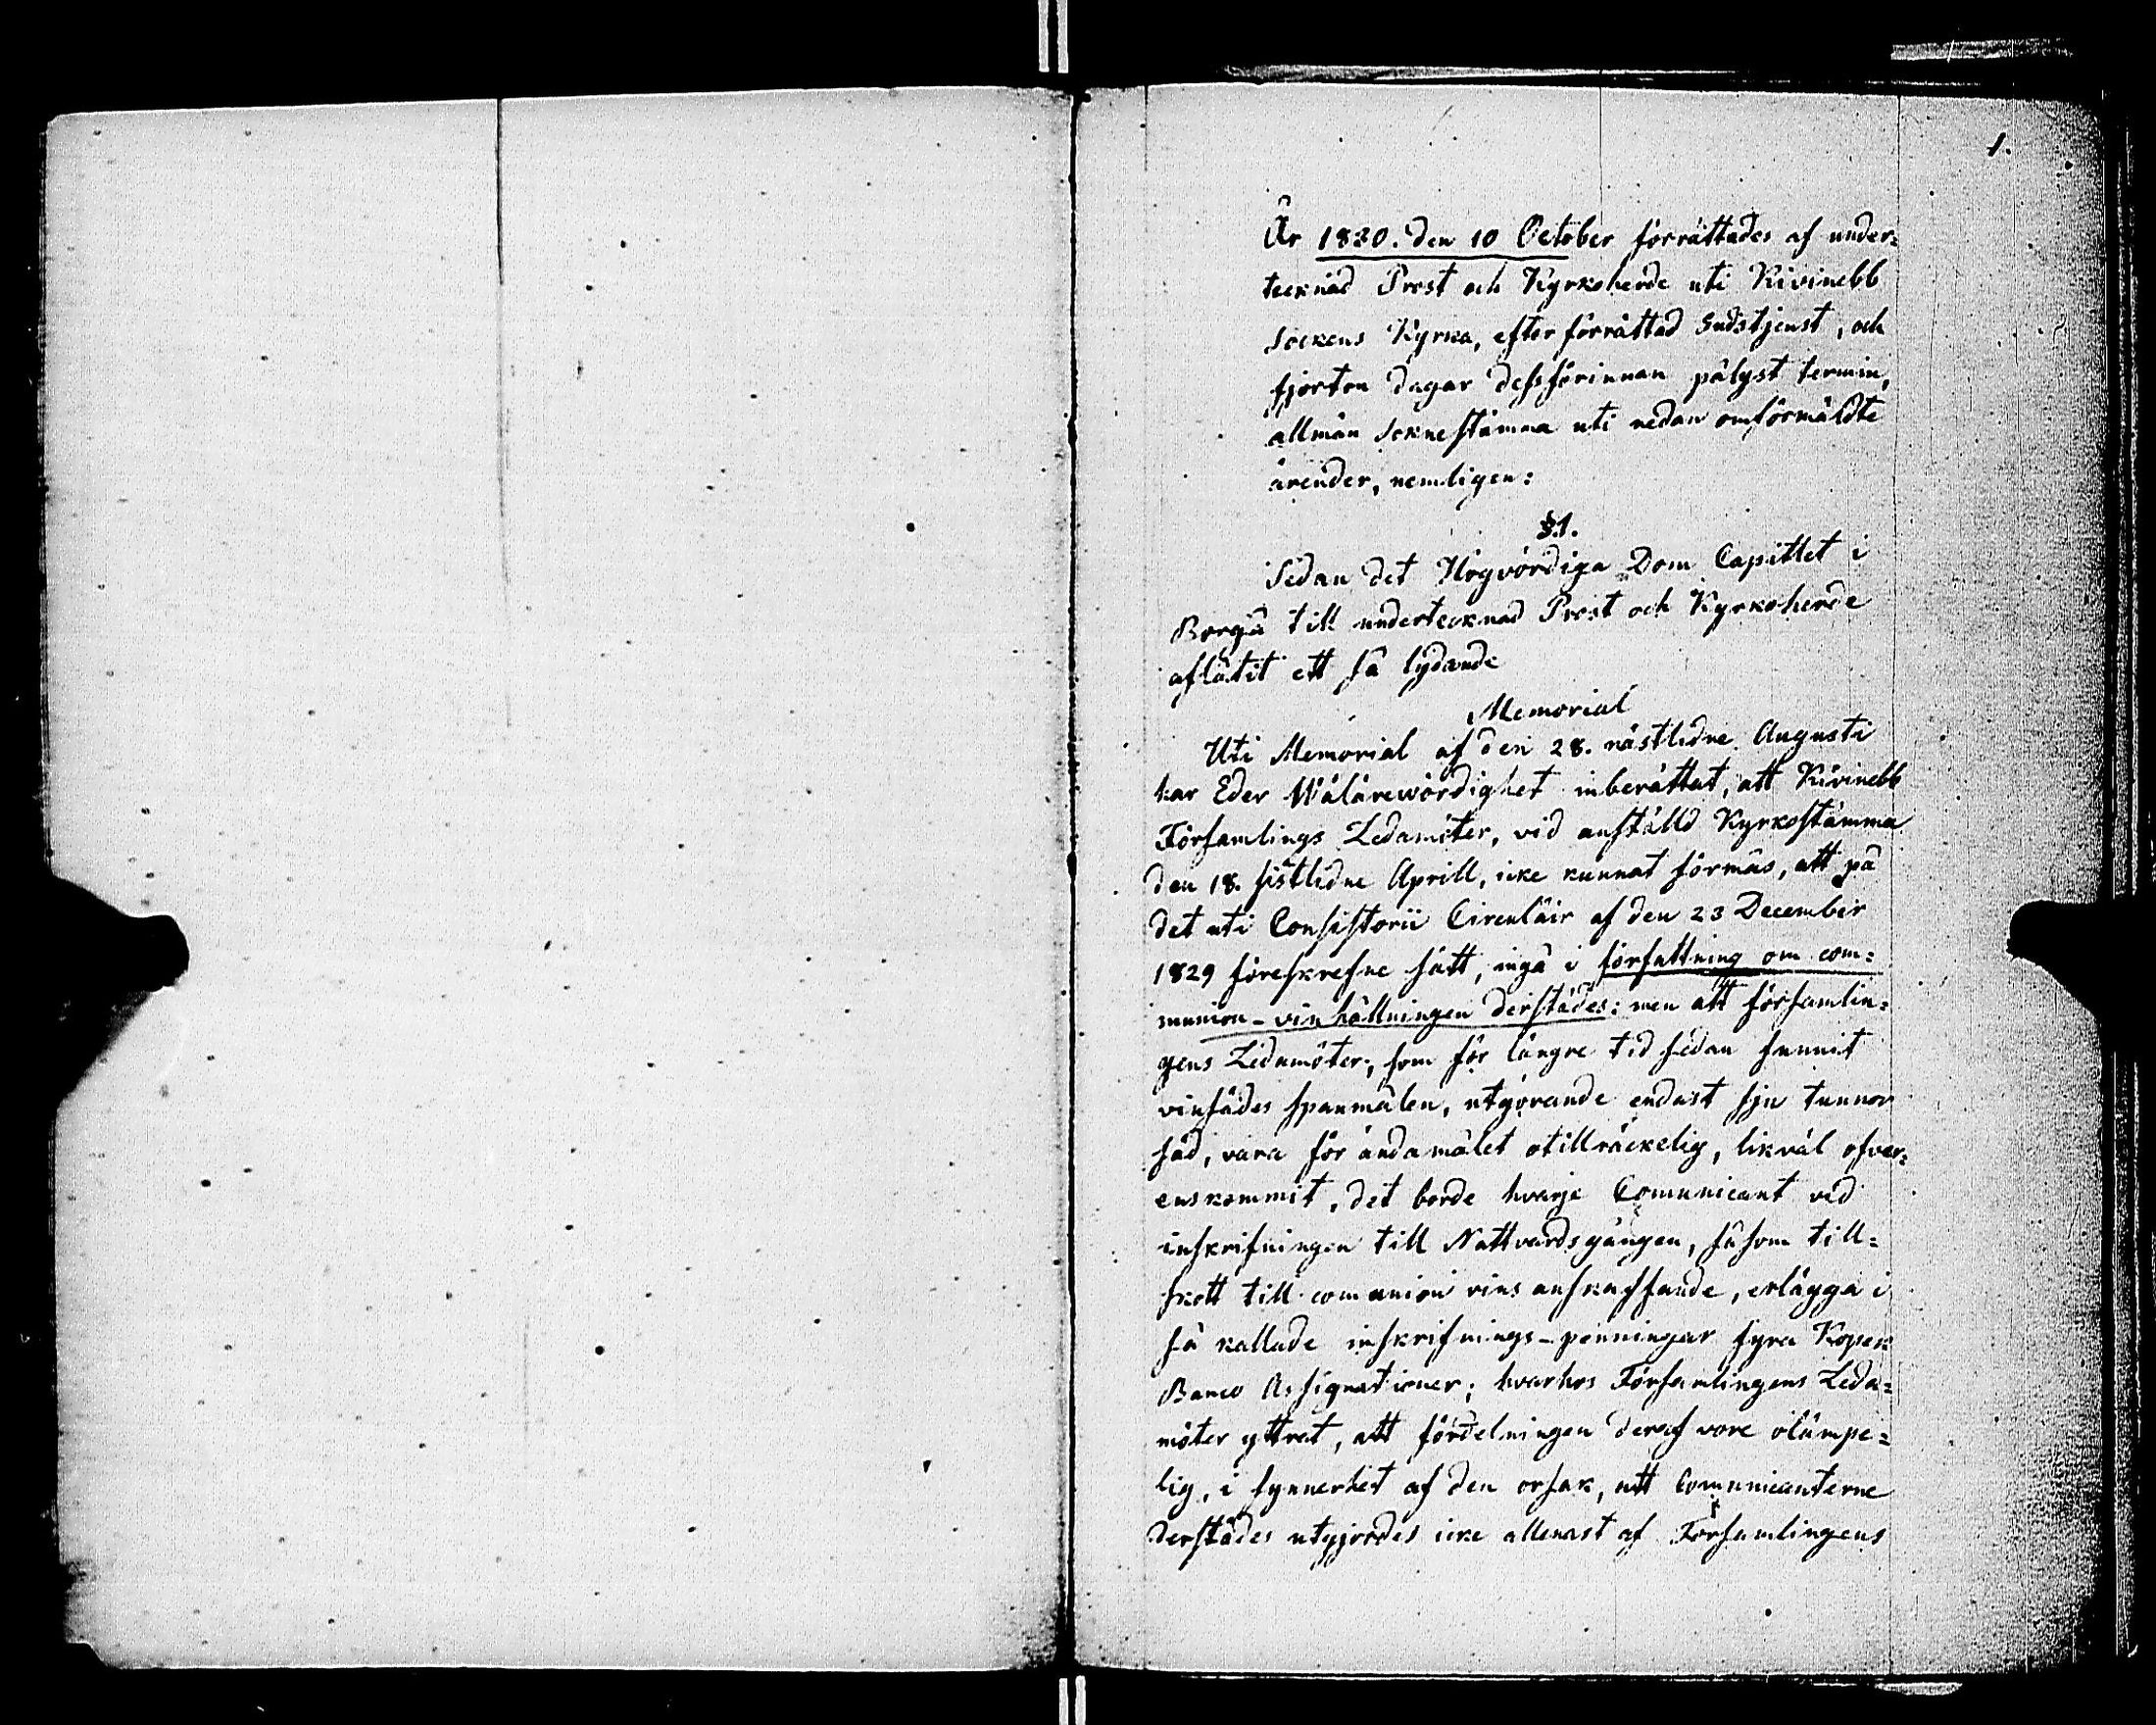 1.
År 1830. den 10 October förrättades af under=
tecknad Prost och Kyrkoherde uti Kivinebb
Sockens Kyrka, efter förrättad Gudstjenst, och
fjorton dagar dessförinnan pålyst termin,
allmän Socknestämma uti nedan omförmäldte
ärender, nemligen:
§1.
Sedan det Högvördiga Dom Capitlet i
Borgå till undertecknad Prost och Kyrkoherde
aflåtit ett så lydande
Memorial
Uti Memorial af den 28. nästlidne Augusti
har Eder Wälärewördighet inberättat, att Kivinebb
Församlings Ledamöter, vid anställd Kyrkostämma
den 18. sistlidne Aprill, icke kunnat förmås, att på
det uti Consistorii Circulair af den 23 December
1829 föreskrefne sätt, ingå i författning om com=
munion-vinhållningen derstädes: men att församlin=
gens Ledamöter, som för längre tid sedan funnit
vinsädes spanmålen, utgörande endast sju tunnor
säd, vara för ändamålet otillräckelig, likväl öfver=
enskommit, det borde hvarje Communicant vid
inskrifningen till Nattvardsgången, såsom till=
skott till communion vins anskaffande, erlägga i
så kallade inskrifnings-penningar fyra Kopek
Banco Assignationer; hvarhos Församlingens Leda=
möter yttrat, att fördelningen deraf vore olämpe=
lig, i synnerhet af den orsak, att Communicanterne
derstädes utgjordes icke allenast af Församlingens